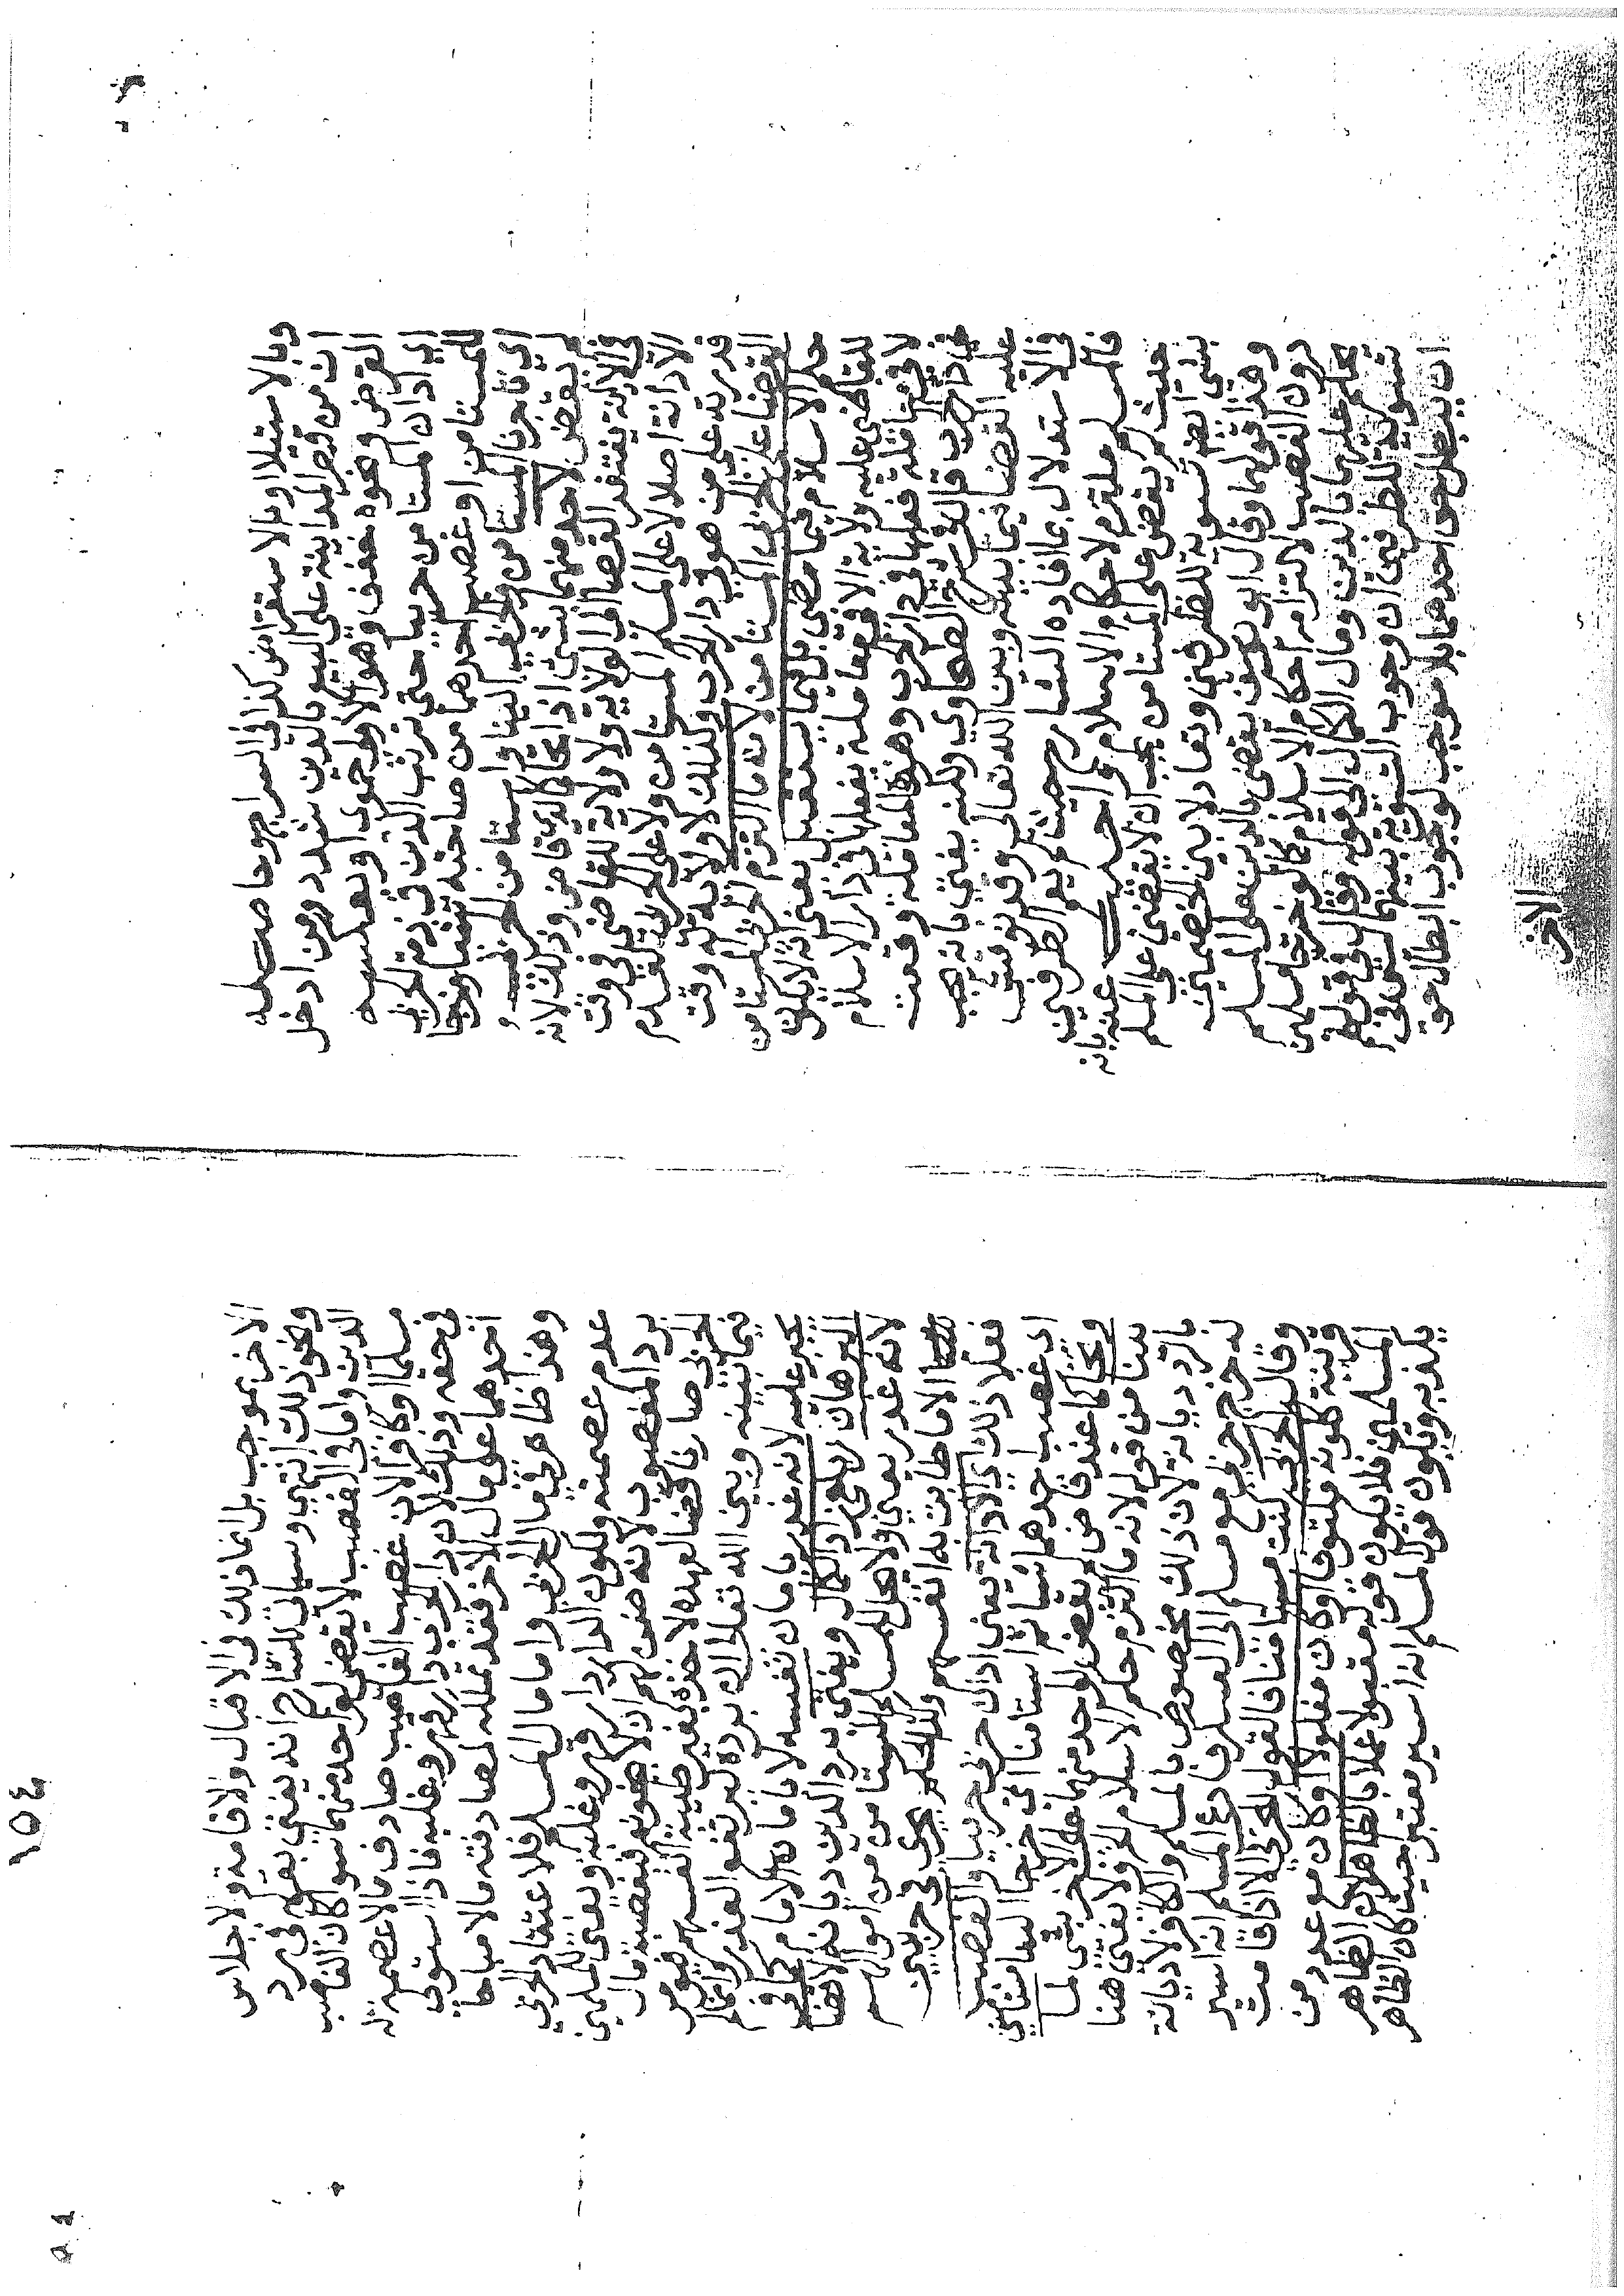 وبالاستيلا وبالاستقراض كذا في السراج وحاصله
ان من قصر المداينة على البيع بالدين شدد ومن ادخل
القرض ونحوه خفف وهو الاولى او بعكسه
اي ادان المستامن حربيا حتى ترتب الدين في ذمة الحربي
للمستامن او غصب احدهما من صاحبه شيئا وخرجا
اي تاجرنا المستامن والحربي الينا واستامن الحربي
لم نقض لاحد منهما بشي اذا تحاكما لدى قاض وذلك لانه
في الادانة يفتقد القضا الى الولاية ولا ولاية للقاضي في وقت
الادانة اصلا لا على المسلم المستامن ولا على الحربي لعدم
قدرته على من هو في دار الحرب وكذلك لا ولاية له وقت
القضا على الحربي المستامن لانه ما التزم الحربي المستامن
حكم الاسلام فيما مضى بل فيما يستقبل يعني انه لا يكون
للقاضي عليه ولاية الا في معاملة يفعلها في دار الاسلام
لا في معاملة فعلها في دار الحرب وهذه المعاملة وقعت
في دار الحرب قال في شرح الطحاوي ولكنه يفتي بانه يجب
عليه القضا فيما بينه وبين الله تعالى وقد نوقش
في الاستدلال بما افاده الشارح حيث لم يعم الطرفين
فالمسلم ملتزم لاحكام الاسلام واجيب عنه بانه
حيث لم يقض على المستامن يجب ان لا يقضى على المسلم
بشي ايضا تسوية للطرفين وتعادلا بين الخصمين
وهذا قولهما وقال ابو يوسف يقضى بالدين على المسلم
دون الغصب لالتزامه احكام الاسلام كما لو خرجا مسلمين
حكم عليهما بالدين ومال الكمال الى قوله وقال في قولهم
تسوية للطرفين ان وجوب التسوية بينهما ليس في
ان يبطل حق احدهما بلا موجب لوجوب ابطال حق
الاخر
١٥٤
الاخر بموجب بل انما ذلك في الاقبال والاقامة والاجلاس
ونحو ذلك انتهى وسياتي للشارح انه يفتي بعد في رد
الدين واما في الغصب لا يقضى لواحد منهما سوا كان الغاصب
مسلما او كافرا لان غصب الغاصب صادف مالا عصمة له
في حقه وذلك لان دار الحرب دار قهر وغلبة فاذا استولى
احدهما على مال الاخر فقد ملكه لمصادفته مالا مباحا
وهذا ظاهر في مال الحربي واما مال المسلم فلاعتقاد الحربي
عدم عصمته ولكون الدار دار قهر وغلبة ويفتى للمسلمين
برد المغصوب لانه ضمن لهم ان لا يخونهم فبغصبه مال
الحربي صار ناقضا لعهده لاخذه بغير طيب انفسهم فيومر
فيما بينه وبين الله تعالى ان يرده ليرتفع الغدر وانما لم
يجبر عليه لانه غدر بامان نفسه لا بامان الامام كما في
البرهان زيلعي زاد الكمال ويفتى برد الدين ديانة لا قضا
لانه غدر يعني ولا يحل للمسلم المستامن من اموالهم
الا ما طابت به انفسهم وكذا الحكم يجري في حربيين
فعلا ذلك اي الادانة يعني ادان حربي حربيا والغصب
اي غصب احدهما شيئا ثم استامنا اي خرجا الينا مستامنين
وتحاكما عند قاض لم يقض لواحد منهما على الاخر بشي لما
بينا من قوله لانه ما التزم حكم الاسلام الخ ولا يفتى هنا
بالرد ديانة لان ذلك مخصوص بالمسلم والكافر لا ديانة
له خرج حربي مع مسلم الى العسكر فادعى المسلم انه اسير
وقال الحربي كنت مستامنا فالقول للحربي الا اذا قامت
قرينة ككونه مكتوفا او كان مغلولا او كان مع عدد من
المسلمين فلا يكون قوله مقبولا عملا بالظاهر لان الظاهر
يكذبه ويكون قول المسلم انه اسير معتبرا حيث كان الظاهر